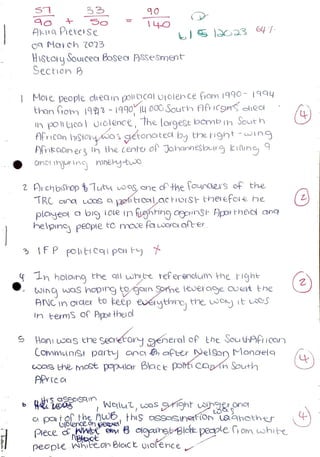 57 33 90
90 + 50 = 140
b/5/2023 64%
Akira Pieterse
09 March 2023
History Sourced Based Assesment
Section B
1 More people died in political violence from 1990 - 1994
than from 1983 - 1990, 14 000 South Africans died
in political violence, The largest bomb in South
African history was detonated by the right - wing
Afrikaaners in the cento of Johannesburg killing 9
and injuring ninety-two
4
2 Archbishop Tutu was one of the founders of the
TRC and was a political activist therefore he
played a big role in fighting against Apartheid and
helping people to move foward after.
2
3 IFP political party
4 In holding the all white referendum the right
wing was hoping to gain some leverage over the
ANC in order to keep everything the way it was
in terms of Apartheid
2
5 Hani was the secretary general of the South African
Communist party and after Nelson Mandela
was the most popular Black politician in South
Africa
4
b His assasin Waluz, was a right winger and
a part of the AWB, this assasination was another
piece of violence on people against Black people from white
people white on Black violence
4